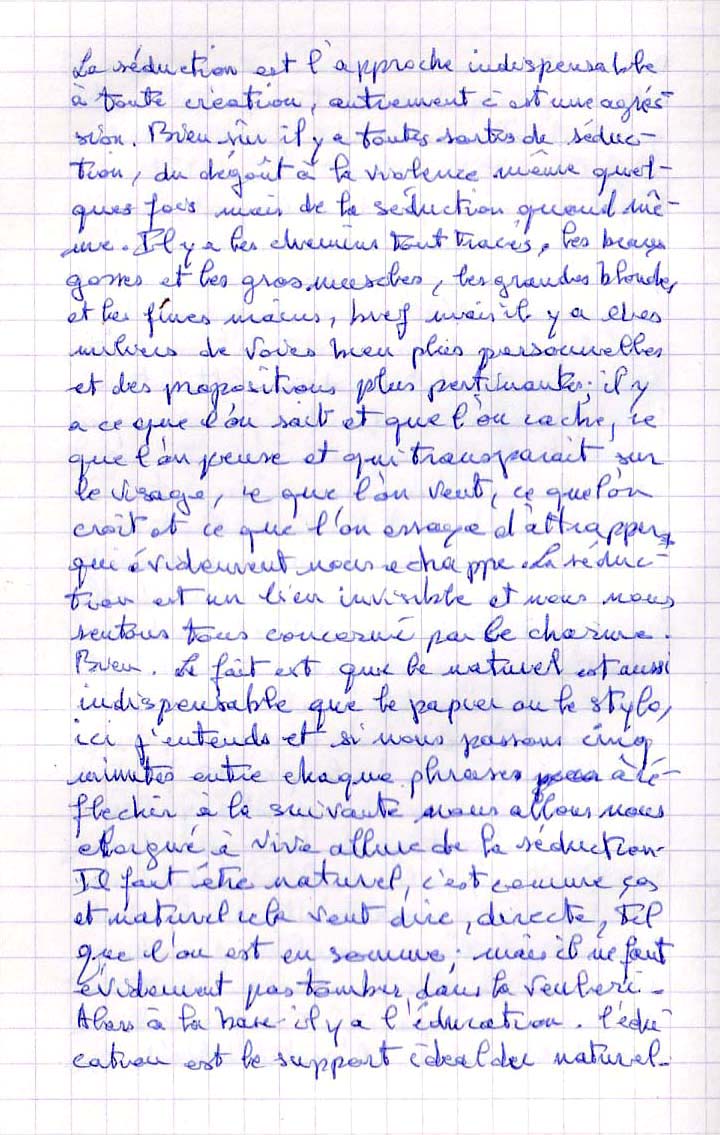 La séduction est l'approche indispensable
à toute création, autrement c'est une agrés-
sion. Bien sûr il y a toutes sortes de séduc-
tion, du dégoût à la violence même quel-
ques fois mais de la séduction quand mê-
me. Il y a les chemins tout tracés, les beaux
gosses et les gros muscles, les grandes blondes,
et les fines mains, bref mais il y a des
milliers de voies bien plus personnelles
et des propositions plus pertinantes ; il y
a ce que l'on sait et que l'on cache, ce
que l'on pense et qui transparait sur
le visage, ce que l'on veut, ce que l'on
croit et ce que l'on essaye d'attrapper
qui évidemment nous echappe. La séduc-
tion est un lien invisible et nous nous
sentons tous concerné par le charme.
Bien. Le fait est que le naturel est aussi
indispensable que le papier ou le stylo,
ici j'entends et si nous passons cinq
minutes entre chaque phrases à ré-
flechir à la suivante nous allons nous
eloigné à vive allure de la séduction.
Il faut être naturel, c'est comme ças
et naturel cela veut dire, directe, tel
que l'on est en somme ; mais il ne faut
évidement pas tomber dans la
Alors à la base il y a l'éducation. l'édu-
cation est le support idéal du naturel.